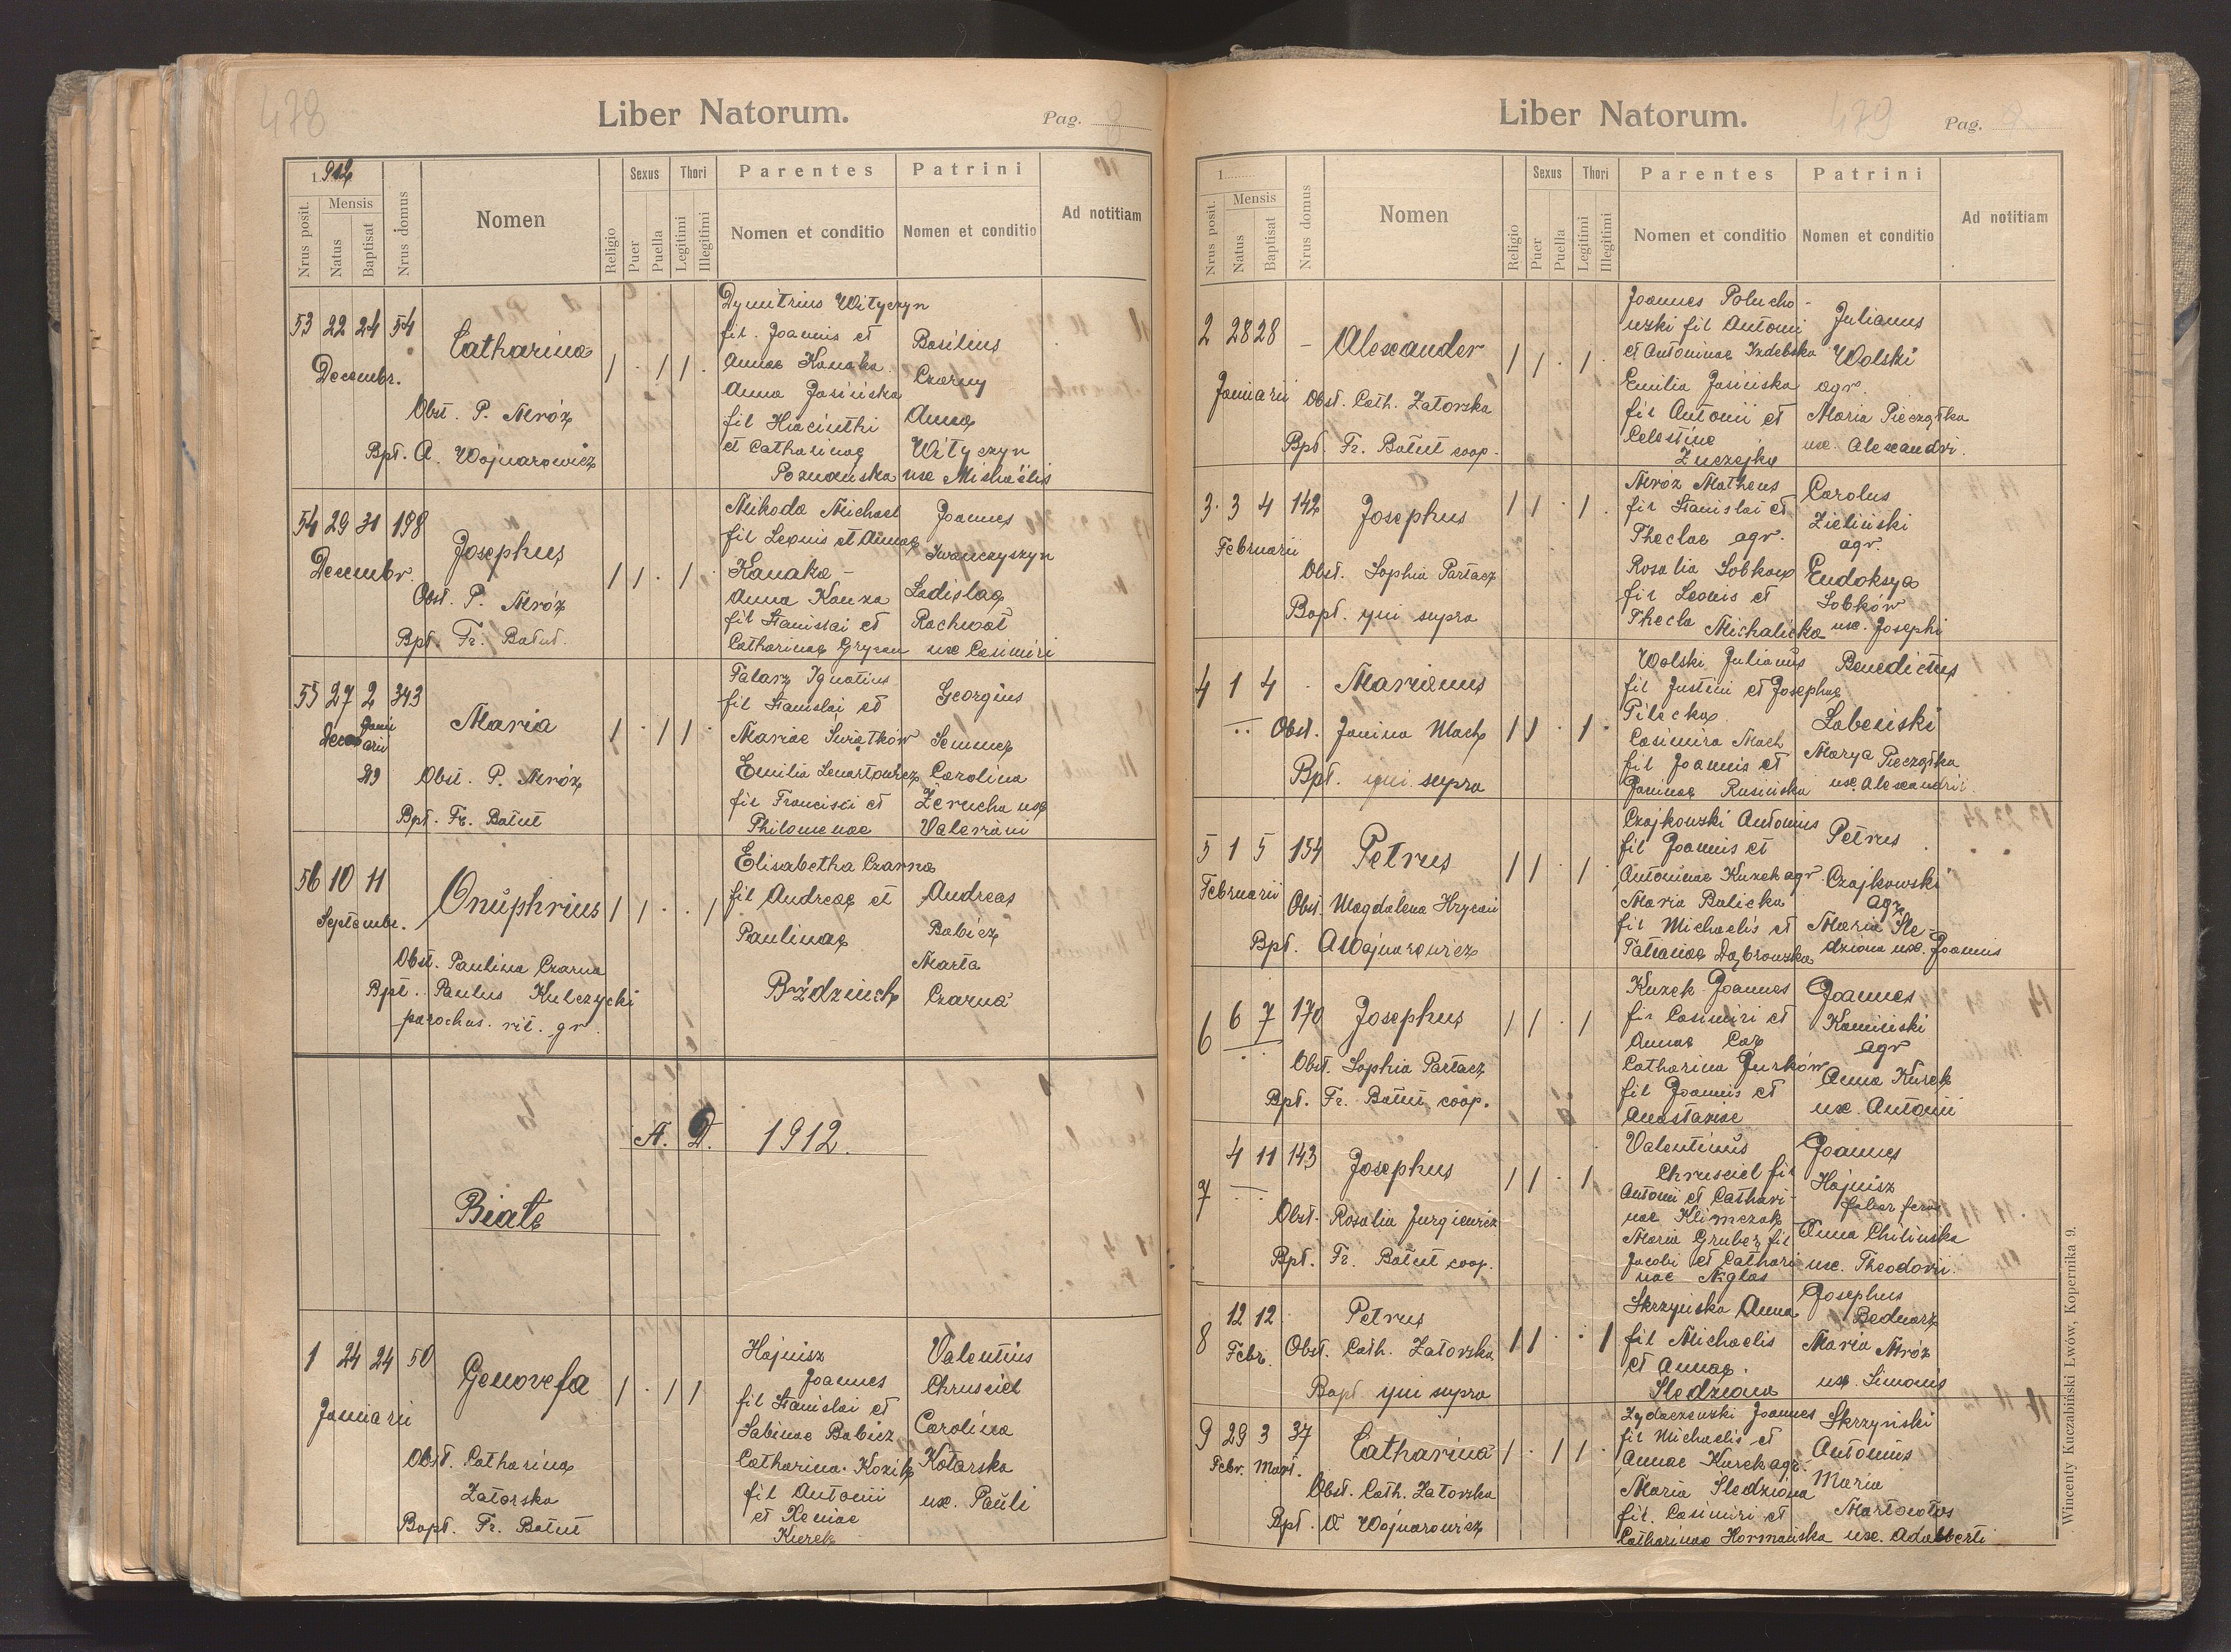 478
Liber Natorum.
Pag. 8
1912
Nrus posit.
Mensis
Natus
Baptisat
Nrus domus
Nomen
Religio
Sexus
Puer
Puella
Thori
Legitimi
Illegitimi
Parentes
Nomen et conditio
Patrini
Nomen et conditio
Ad notitiam
53 22 24 54
Decembr.
Catharina
Obst. P. Mróz
Bpt. A. Wojnarowicz
1 · 1 1 ·
Dymitrius Wityczyn
fil. Joannis et
Annae Kanaka
Anna Jasińska
fil Hiacinthi
et Catharinae
Poznańska
Basilius
Czarny
Anna
Wityczyn
ux Michaëlis
54 29 31 198
Decembr.
Josephus
Obst. P. Mróz
Bpt. Fr. Batut.
1 1 · 1 ·
Mikoda Michael
fil Leonis et Annae
Kanaka –
Anna Kauza
fil Stanislai et
Catharinae Grycan
Joannes
Iwanczyszyn
Ladislaa
Rachwał
ux Casimiri
55 27 2 343
Dec Januarii
Maria
Obst. P. Mróz
Bpt. Fr. Batut
1 · 1 1 ·
Talarz Ignatius
fil Stanislai et
Mariae Świątków
Emilia Lenartowicz
fil Francisci et
Philomenae
Georgius
Carolina
Żerucha ux
Valeriani
56 10 11
Septembr.
Onuphrius
Obst. Paulina Czarna
Bpt. Paulus Kulczycki
parochus. rit. gr.
1 1 · · 1
Elisabetha Czarna
fil Andreae et
Paulinae
Andreas
Babicz
Marta
Czarna
A. D. 1912.
Białe
1 24 24 50
Januarii
Genovefa
Obst. Catharina
Zatorska
Bapt. Fr. Batut
1 · 1 1
Hajnisz
Joannes
fil Stanislai et
Sabinae Babicz
Catharina Kozik
fil Antonii
et Xeniae
Kurek
Valentius
Chruściel
Carolina
Kotarska
ux. Pauli
Liber Natorum.
479
Pag.
1
Nrus posit.
Mensis
Natus
Baptisat
Nrus domus
Nomen
Religio
Sexus
Puer
Puella
Thori
Legitimi
Illegitimi
Parentes
Nomen et conditio
Patrini
Nomen et conditio
Ad notitiam
2 28 28 –
Januarii
Alexander
Obst. Cath. Zatorska
Bpt. Fr. Batut coop.
1 1 · 1 ·
Joannes Polucho-
wski fil Antoni
et Antoninae Izdebska
Emilia Jasińska
fil Antonii et
Celestine
Zuczejka
Julianus
Wolski
agr.
Maria Pieczątka
ux. Alexandri.
3. 3 4 142
Februarii
Josephus
Obst. Sophia Partacz
Bapt. qui supra
1 1 · 1 ·
Mróz Matheus
fil Stanislai et
Theclae agr.
Rosalia Sobków
fil Leonis et
Thecla Michalicka
Carolus
Zieliński
agr.
Eudoksya
Sobków
ux. Josephi
4 1 4 ·
Marianus
Obst. Janina Mach
Bpt. qui supra
1 1 · 1 ·
Wolski Julianus
fil Justini et Josephae
Pilecka
Casimira Mach
fil Joannis et
Janinae Rusińska
Benedictus
Łabeński
Marya Pieczątka
ux. Alexandrii.
5 1 5 154
Februarii
Petrus
Obst. Magdalena Hrycań
Bpt. A Wojnarowicz
1 1 · 1 ·
Czajkowski Antonius
fil Joannis et
Antoninae Kurek agr.
Maria Balicka
fil Michaelis et
Tatianae Dąbrowska
Petrus
Czajkowski
agr
Maria Śle-
dziona ux. Joannis
6 6 7 170
Josephus
Obst. Sophia Partacz
Bpt. Fr. Batut coop.
1 1 · 1
Kurek Joannes
fil Casimiri et
Annae Cap
Catharina Jurków
fil Joannis et
Anastasiae
Joannes
Kamiński
agr
Anna Kurek
ux. Antonii
7 4 11 143
Josephus
Obst. Rosalia Jurgiewicz
Bpt. Fr. Batut coop.
1 1 · 1
Valentinus
Chruściel fil
Antoni et Cathari-
nae Klimczak
Maria Gruber fil
Jacobi et Cathari-
nae Niglas
Joannes
Hajnisz
faber ferr
Anna Chilińska
ux. Theodorii.
8 12 12
Febr.
Petrus
Obst. Cath. Zatorska
Bapt qui supra
1 1 · · 1
Skrzyńska Anna
fil Michaelis
et Annae.
Śledziona
Josephus
Bednarz
Maria Mróz
ux. Simonis
9 29 3 37
Febr. Mart.
Catharina
Obst. Cath. Zatorska
Bpt. A Wojnarowicz
1 · 1 1 ·
Żydaczewski Joannes
fil Michaelis et
Annae Kurek agr.
Maria Śledziona
fil. Casimiri et
Catharinae Hormańska
Skrzyński
Antonius
Maria
ux. Adalberti
Wincenty Kuczabiński Lwów, Kopernika 9.